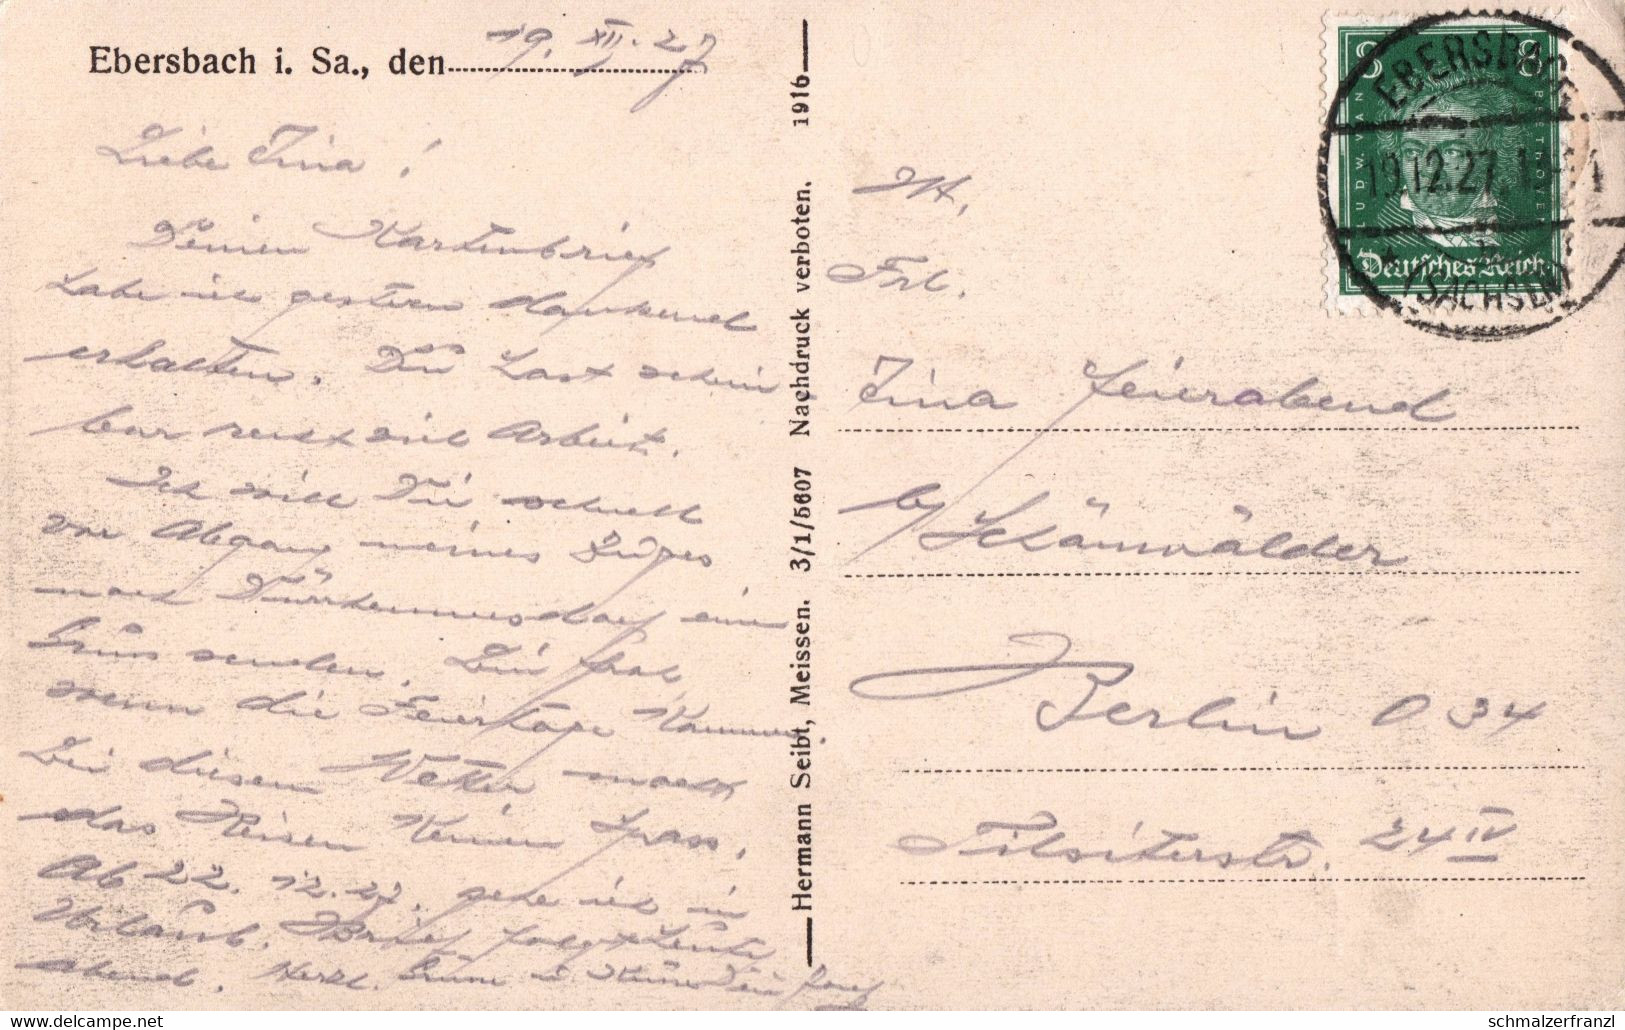 Ebersbach i. Sa., den 19. XII. 27
Liebe Tina!
Deinen Kartenbrief
habe ich gestern dankend
erhalten. Du hast schein
bar recht viel Arbeit.
Ich will Dir schnell
vor Abgang meines Zuges
nach Dürrhennersdorf einen
Gruss senden. Bin froh
wenn die Feiertage kommen.
Bei diesem Wetter macht
das Reisen keinen Spass.
Ab 22. 12. 27. gehe ich in
Urlaub. Brief folgt heute
abend. Herzl. Grüsse u. Küsse Dein
Hermann Seibt, Meissen. 3/1/5607 Nachdruck verboten. 1916
8 8
LUDW. VAN BEETHOVEN
Deutsches Reich
EBERSBACH
19.12.27. 1
* (SACHSEN)
Frl.
Tina Feierabend
b/ Schönwälder
Berlin O 34
Tilsiterstr. 24 IV
www.delcampe.net
schmalzerfranzl